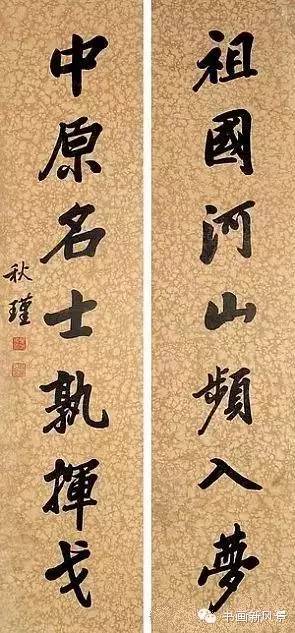 祖國河山頻入夢
中原名士孰揮戈
秋瑾
书画新风景